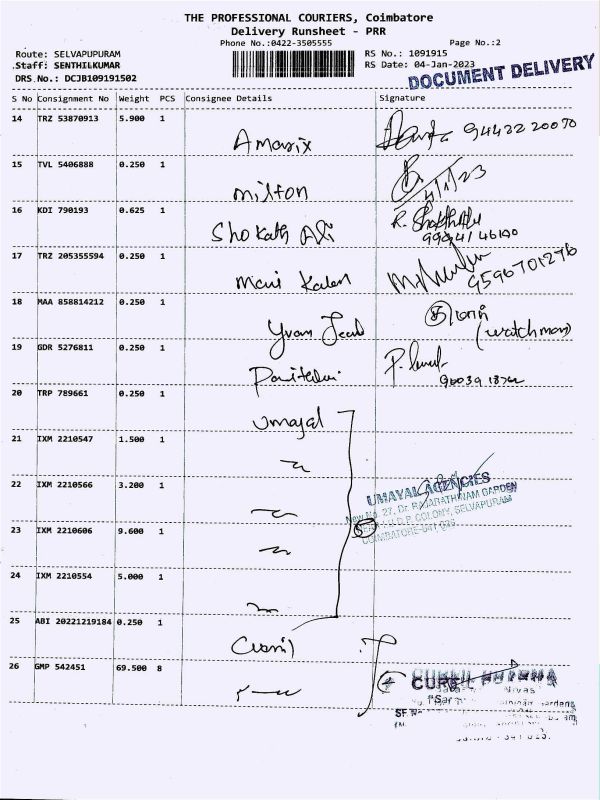 THE PROFESSIONAL COURIERS, Coimbatore
Delivery Runsheet - PRR
Phone No.:0422-3505555
Page No.:2
Route: SELVAPUPURAM
Staff: SENTHILKUMAR
DRS No.: DCJB109191502
RS No.: 1091915
RS Date: 04-Jan-2023
DOCUMENT DELIVERY
S No Consignment No Weight PCS Consignee Details Signature
14 TRZ 53870913 5.900 1
Amarix 94422 20070
15 TVL 5406888 0.250 1
milton 4/1/23
16 KDI 790193 0.625 1
Shokath Ali R.
17 TRZ 205355594 0.250 1
Mani 9596701276
18 MAA 858814212 0.250 1
Yvan (watchman)
19 GDR 5276811 0.250 1
P.
20 TRP 789661 0.250 1
Umayal
21 IXM 2210547 1.500 1
22 IXM 2210566 3.200 1
UMAYAL AGENCIES
New No. 27, Dr. RAJARATHINAM GARDEN
COLONY, SELVAPURAM
COIMBATORE-641 026
23 IXM 2210606 9.600 1
5
24 IXM 2210554 5.000 1
25 ABI 20221219184 0.250 1
26 GMP 542451 69.500 8